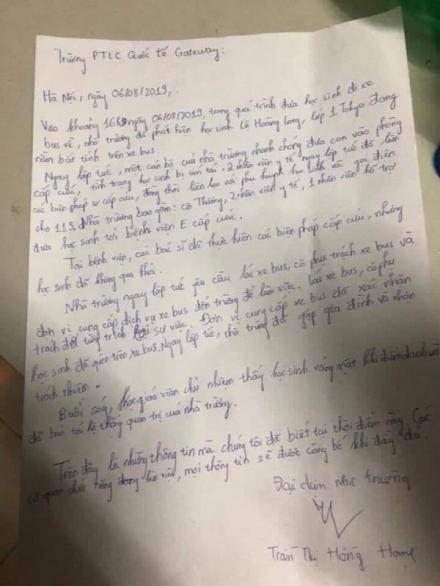 Trường PTLC Quốc tế Gateway.
Hà Nội, ngày 06/08/2019,
Vào khoảng 16h ngày 06/08/2019, trong quá trình đưa học sinh đi xe
bus về, nhà trường đã phát hiện học sinh Lê Hoàng Long, lớp 1 Tokyo đang
nằm bất tỉnh trên xe bus
Ngay lập tức, một cán bộ của nhà trường nhanh chóng đưa con vào phòng
cấp cứu, tình trạng học sinh bị tím tái, 2 nhân viên y tế ngay lập tức đã
các biện pháp sơ cấp cứu, đồng thời liên lạc với phụ huynh học sinh và gọi điện
cho 115. Nhà trường bao gồm: cô Thường, 2 nhân viên y tế, 1 nhân viên hỗ trợ
đưa học sinh tới bệnh viện E cấp cứu.
Tại bệnh viện, các bác sĩ đã thực hiện các biện pháp cấp cứu, nhưng
học sinh đã không qua khỏi.
Nhà trường ngay lập tức yêu cầu lái xe bus, cô phụ trách xe bus và
đơn vị cung cấp dịch vụ xe bus đến trường để làm việc. lái xe bus, cô phụ
trách đã tường trình sự việc. Đơn vị cung cấp xe bus đã xác nhận
học sinh để quên trên xe bus. Ngay lập tức, nhà trường đã gặp gia đình và nhận
trách nhiệm.
Buổi sáng, giáo viên chủ nhiệm thấy học sinh vắng mặt khi điểm danh và
đã báo tới hệ thống quản trị của nhà trường.
Trên đây là những thông tin mà chúng tôi đã biết tại thời điểm này. Các
cơ quan chức năng đang làm việc, mọi thông tin sẽ được công bố khi đầy đủ.
Đại diện nhà trường
Trần Thị Hồng Hạnh